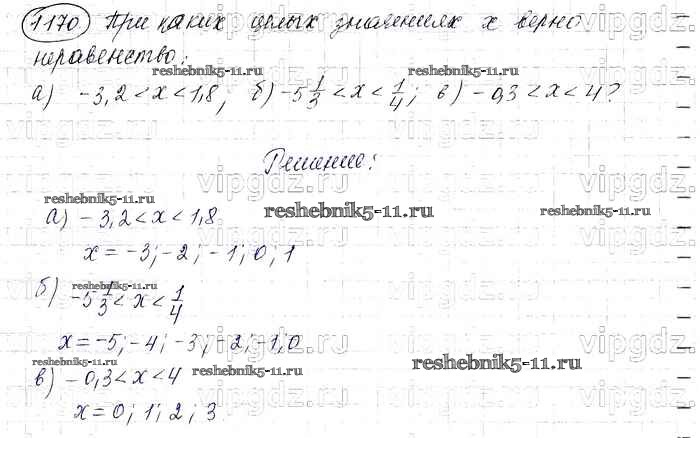 1170 При каких целых значениях x верно
неравенство:
reshebnik5-11.ru
а) -3,2 < x < 1,8; б) -5 1/3 < x < 1/4; в) -0,3 < x < 4?
Решение:
reshebnik5-11.ru reshebnik5-11.ru
а) -3,2 < x < 1,8
x = -3; -2; -1; 0; 1
reshebnik5-11.ru
б) -5 1/3 < x < 1/4
x = -5; -4; -3; -2; -1; 0
reshebnik5-11.ru reshebnik5-11.ru reshebnik5-11.ru
в) -0,3 < x < 4
x = 0; 1; 2; 3
vipgdz